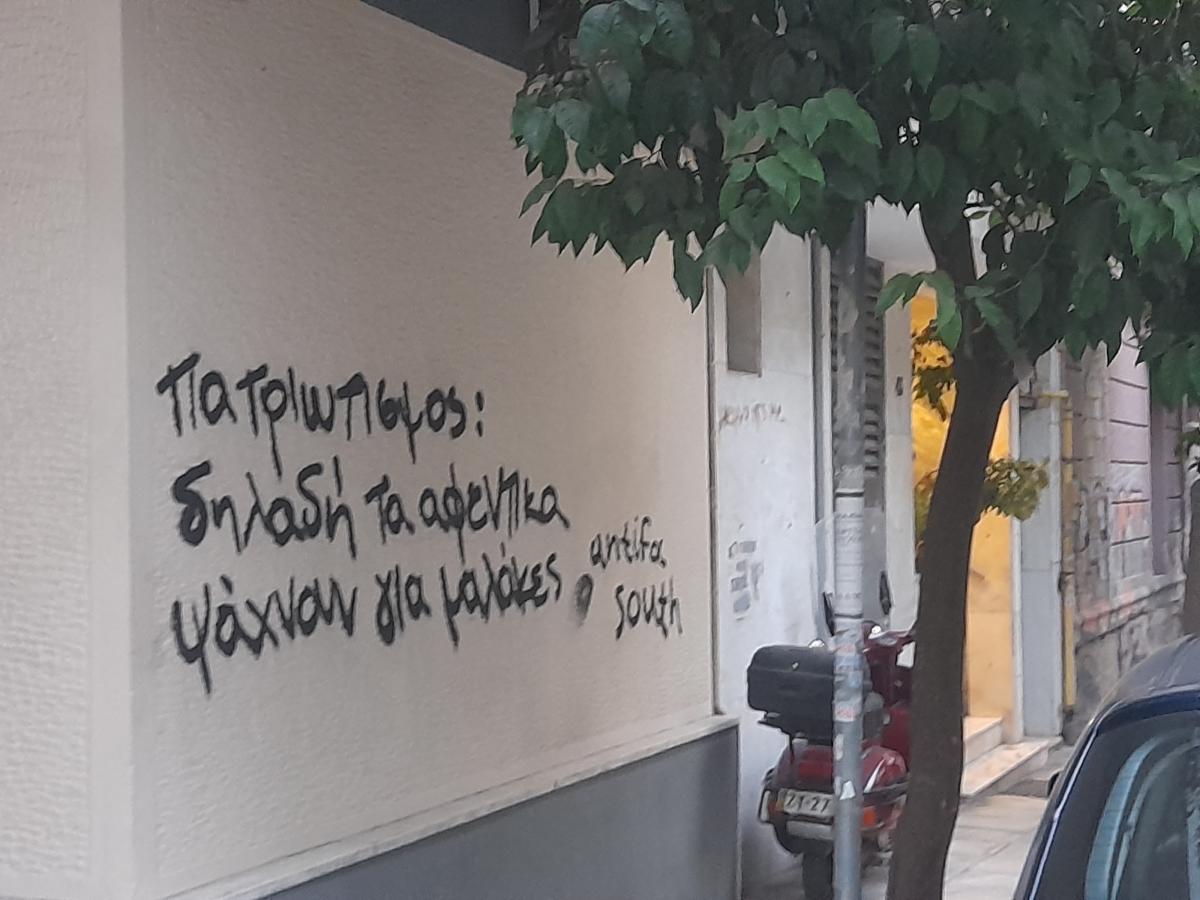 Πατριωτισμος:
δηλαδή τα αφεντικα
ψάχναν για μαλάκες
antifa
south
ZT-27